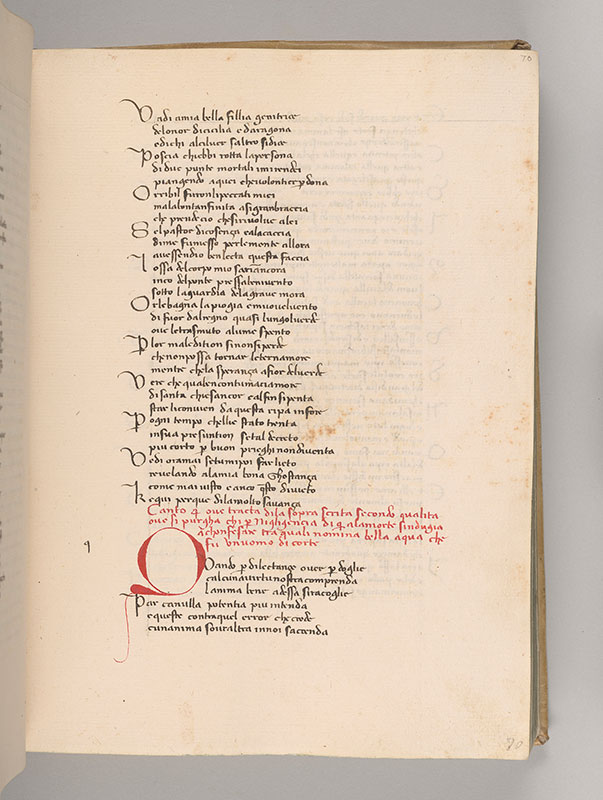 70
Vadi amia bella fillia genitrice
delonor dicicilia e daragona
edichi alciluer saltro sidice
Poscia chiebbi rotta lapersona
di due punte mortali imirendei
piangendo aquei cheuolontier pdona
Orribil furon lipeccati miei
malalontanfinita asigranbraccia
che prendecio chesiriuolue alei
Sel pastor dicosenza cealacaccia
dime fumesso perlemente allora
auessendio benlecta questa faccia
Iossa delcorpo mio sarianćora
inco delponte pressalenivento
sotto laguardia delagraue mora
Orlebagnia lapiogia emuoueluento
di fuor dalregno quasi lungoluerde
oue letrasmuto alume spento
Plor maledition sinonsiperde
chenonpossa tornar leternamore
mentre chela speranza afior deluerde
Vere che qualencontumaciamore
disanta chiesancor calfin sipenta
star liconuien da questa ripa infore
Pogni tempo chellie stato trenta
insua presuntion setal decreto
piu corto p buon prieghi nondiuenta
Vedi oramai setumipoi far lieto
reuelando alamia bona Ghostanza
come maiuisto e anco qsto diuieto
Kequi perque dilamolto sauanza
Canto 4 oue tracta dila sopra scrita secondo qualita
oue si purgha chi p Nigligencia di qi alamorte sindugia
achonfesare tra quali nomina bella aqua che
fu unuomo di corte
q
Quando p dilectanze ouer p doglie
calcunauirtu nostra comprenda
lanima bene adessa siracoglie
Par canulla potentia piu intenda
equeste contraquel error che crede
cunanima souraltra innoi sacenda
70